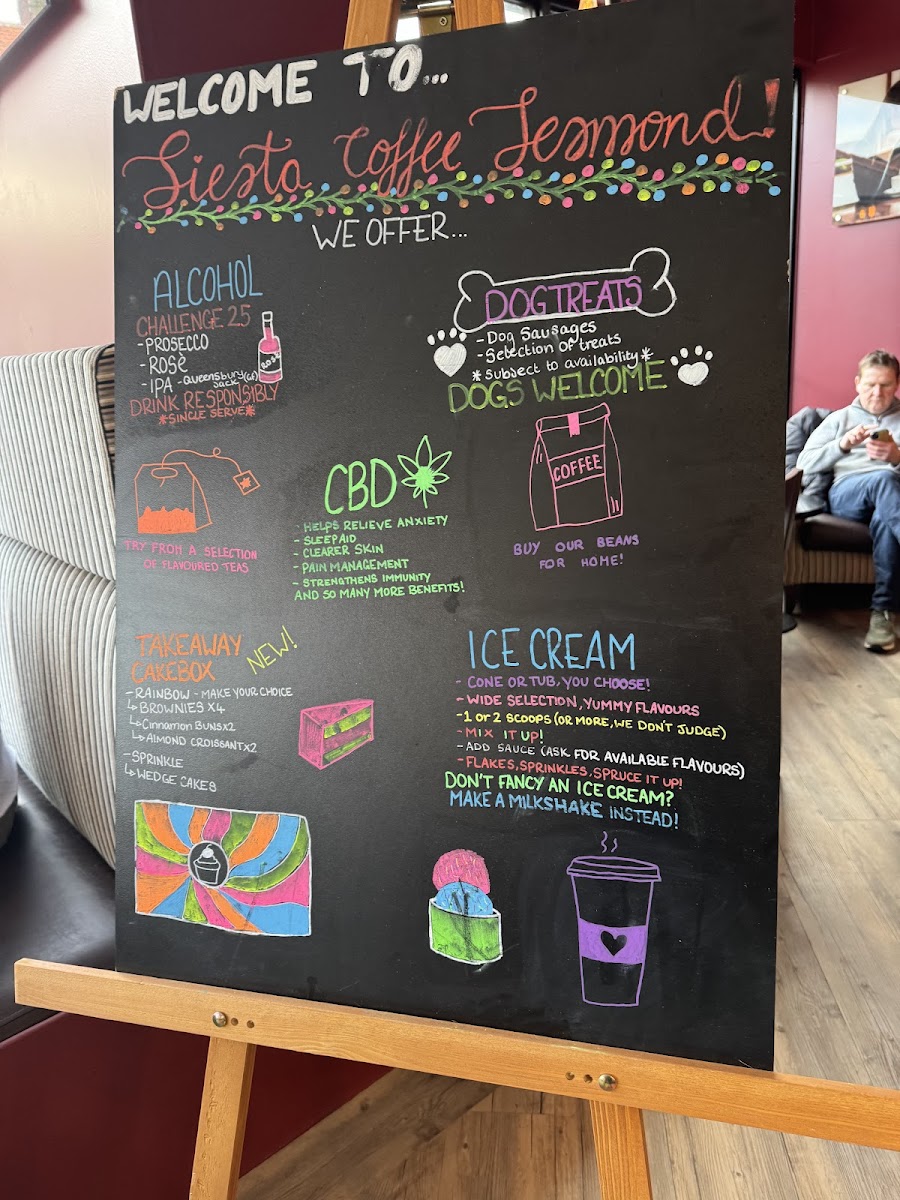 WELCOME TO...
Siesta Coffee Jesmond!
WE OFFER...
ALCOHOL
CHALLENGE 25
-PROSECCO
-ROSÈ
-IPA -QUEENSBURY
JACK (GF)
DRINK RESPONSIBLY
*SINGLE SERVE*
ROSÉ
DOG TREATS
-Dog Sausages
-Selection of treats
*Subject to availability*
DOGS WELCOME
TRY FROM A SELECTION
OF FLAVOURED TEAS
CBD
- HELPS RELIEVE ANXIETY
- SLEEPAID
- CLEARER SKIN
- PAIN MANAGEMENT
- STRENGTHENS IMMUNITY
AND SO MANY MORE BENEFITS!
COFFEE
BUY OUR BEANS
FOR HOME!
TAKEAWAY
CAKEBOX
NEW!
-RAINBOW - MAKE YOUR CHOICE
↳BROWNIES X4
↳Cinnamon BUNSX2
↳ALMOND CROISSANTX2
-SPRINKLE
↳WEDGE CAKES
ICE CREAM
- CONE OR TUB, YOU CHOOSE!
- WIDE SELECTION, YUMMY FLAVOURS
-1 OR 2 SCOOPS (OR MORE, WE DON'T JUDGE)
-MIX IT UP!
-ADD SAUCE (ASK FOR AVAILABLE FLAVOURS)
-FLAKES, SPRINKLES, SPRUCE IT UP!
DON'T FANCY AN ICE CREAM?
MAKE A MILKSHAKE INSTEAD!